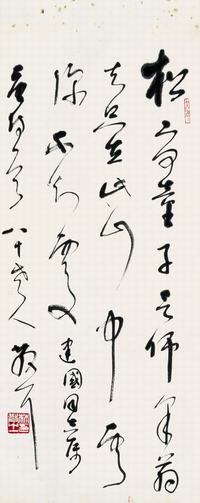 松下问童子言师采药
去只在此山中云
深不知处 建國同志属
八十老人 散耳